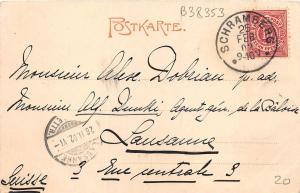 B38353
POSTKARTE.
SCHRAMBERG
25
FEB
9-10
Monsieur Alex. Dobrian p. ad.
Monsieur Alf. Zunki, Agent gén. de la Bâloise
Lausanne
Suisse 3 Rue centrale 3
26.II.02.VI
20